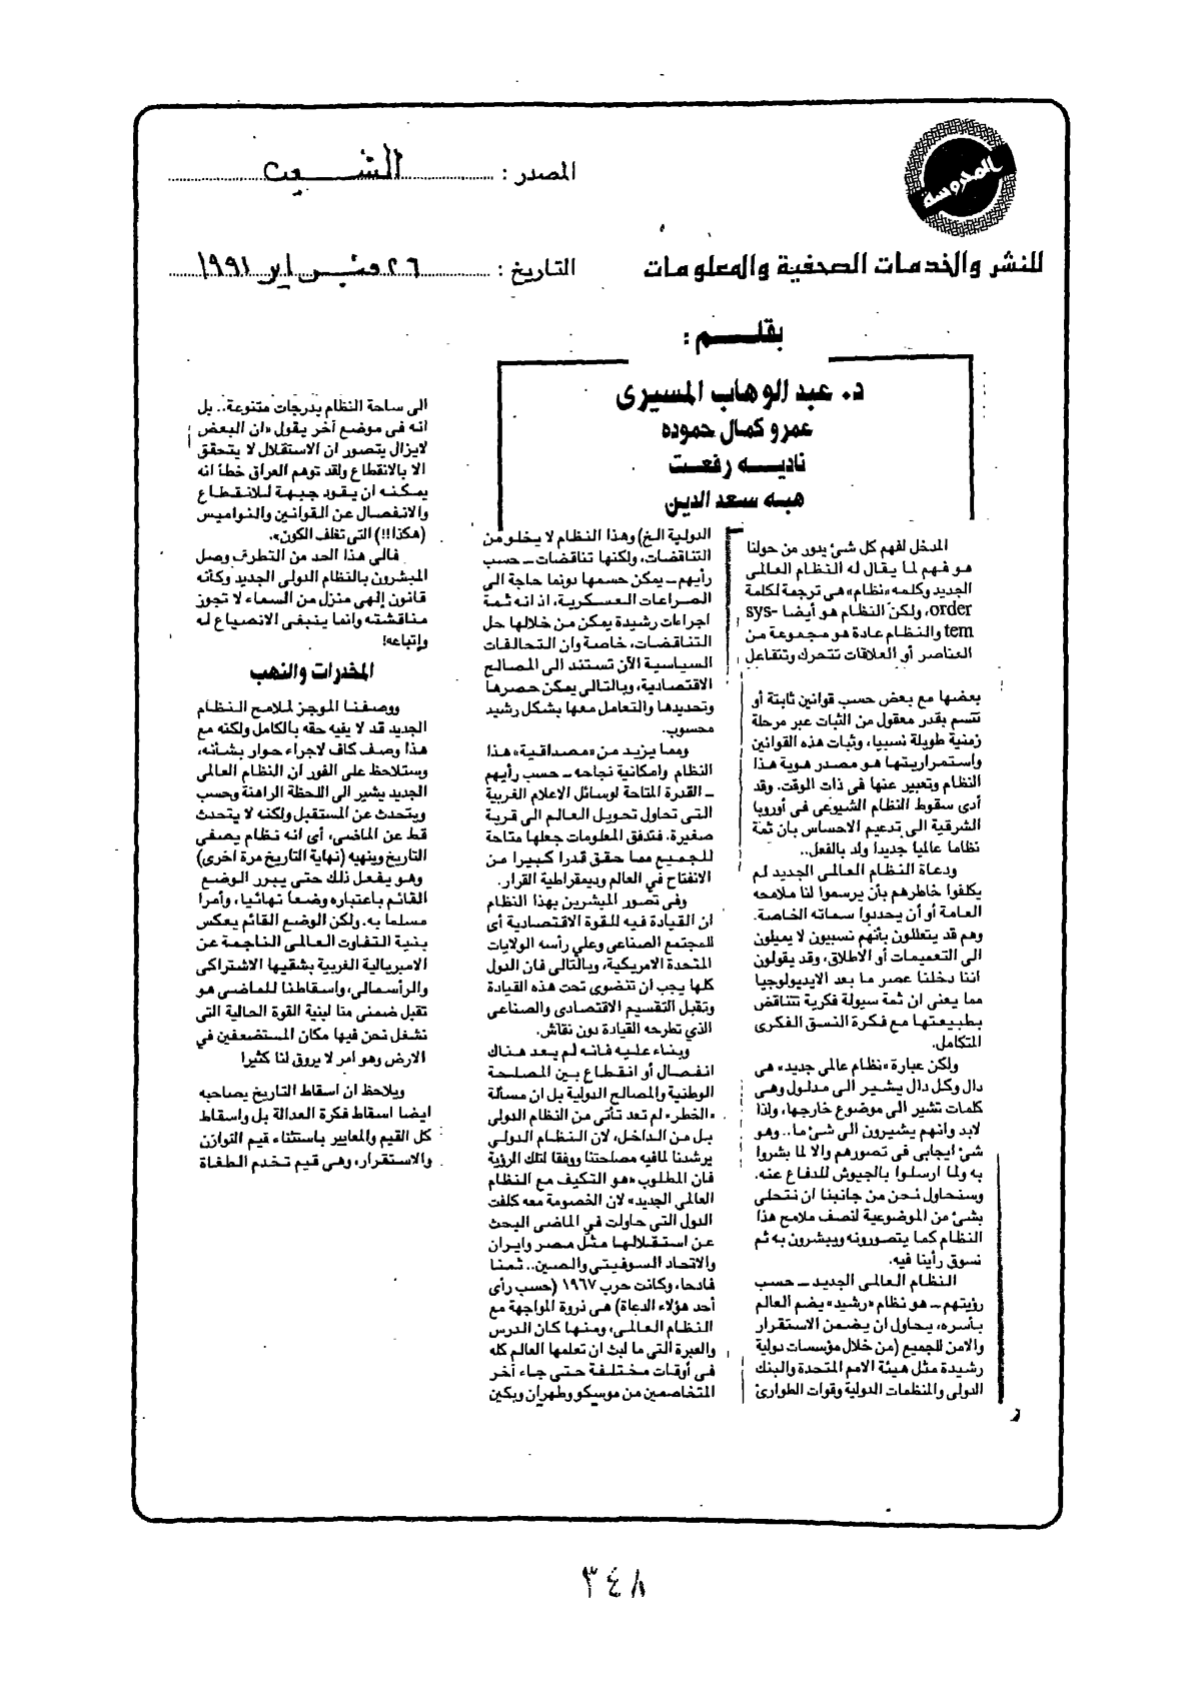 المحروسة
للنشر والخدمات الصحفية والمعلومات
المصدر : الشعب
التاريخ : ٢٦ فبراير ١٩٩١
بقلم :
د. عبد الوهاب المسيرى
عمرو كمال حموده
ناديه رفعت
هبه سعد الدين
المدخل لفهم كل شئ يدور من حولنا
هو فهم لما يقال له النظام العالمى
الجديد وكلمه «نظام» هى ترجمة لكلمة
order، ولكن النظام هو أيضا sys-
tem والنظام عادة هو مجموعة من
العناصر أو العلاقات تتحرك وتتفاعل
بعضها مع بعض حسب قوانين ثابتة أو
تتسم بقدر معقول من الثبات عبر مرحلة
زمنية طويلة نسبيا، وثبات هذه القوانين
واستمراريتها هو مصدر هوية هذا
النظام وتعبير عنها فى ذات الوقت. وقد
أدى سقوط النظام الشيوعى فى أوروبا
الشرقية الى تدعيم الاحساس بان ثمة
نظاما عالميا جديدا ولد بالفعل..
ودعاة النظام العالمى الجديد لم
يكلفوا خاطرهم بأن يرسموا لنا ملامحه
العامة أو أن يحددوا سماته الخاصة.
وهم قد يتعللون بأنهم نسبيون لا يميلون
الى التعميمات أو الاطلاق، وقد يقولون
اننا دخلنا عصر ما بعد الايديولوجيا
مما يعنى ان ثمة سيولة فكرية تتناقض
بطبيعتها مع فكرة النسق الفكرى
المتكامل.
ولكن عبارة «نظام عالمى جديد» هى
دال وكل دال يشير الى مدلول وهى
كلمات تشير الى موضوع خارجها، ولذا
لابد وانهم يشيرون الى شئ ما.. وهو
شئ ايجابى فى تصورهم والا لما بشروا
به ولما ارسلوا بالجيوش للدفاع عنه.
وسنحاول نحن من جانبنا ان نتحلى
بشئ من الموضوعية لنصف ملامح هذا
النظام كما يتصورونه ويبشرون به ثم
نسوق رأينا فيه.
النظام العالمى الجديد ــ حسب
رؤيتهم ــ هو نظام «رشيد» يضم العالم
بأسره، يحاول ان يضمن الاستقرار
والامن للجميع (من خلال مؤسسات دولية
رشيدة مثل هيئة الامم المتحدة والبنك
الدولى والمنظمات الدولية وقوات الطوارئ
الدولية الخ) وهذا النظام لا يخلو من
التناقضات، ولكنها تناقضات ــ حسب
رأيهم ــ يمكن حسمها دونما حاجة الى
الصراعات العسكرية، اذ انه ثمة
اجراءات رشيدة يمكن من خلالها حل
التناقضات، خاصة وان التحالفات
السياسية الآن تستند الى المصالح
الاقتصادية، وبالتالى يمكن حصرها
وتحديدها والتعامل معها بشكل رشيد
محسوب.
ومما يزيد من «مصداقية» هذا
النظام وامكانية نجاحه ــ حسب رأيهم
ــ القدرة المتاحة لوسائل الاعلام الغربية
التى تحاول تحويل العالم الى قرية
صغيرة. فتدفق المعلومات جعلها متاحة
للجميع مما حقق قدرا كبيرا من
الانفتاح في العالم وديمقراطية القرار.
وفى تصور المبشرين بهذا النظام
ان القيادة فيه للقوة الاقتصادية أى
للمجتمع الصناعى وعلي رأسه الولايات
المتحدة الامريكية، وبالتالى فان الدول
كلها يجب ان تنضوى تحت هذه القيادة
وتقبل التقسيم الاقتصادى والصناعى
الذي تطرحه القيادة دون نقاش.
وبناء عليه فانه لم يعد هناك
انفصال أو انقطاع بين المصلحة
الوطنية والمصالح الدولية بل ان مسألة
«الخطر» لم تعد تأتى من النظام الدولى
بل من الداخل، لان النظام الدولي
يرشدنا لمافيه مصلحتنا ووفقا لتلك الرؤية
فان المطلوب «هو التكيف مع النظام
العالمى الجديد» لان الخصومة معه كلفت
الدول التى حاولت في الماضى البحث
عن استقلالها مثل مصر وايران
والاتحاد السوفيتى والصين.. ثمنا
فادحا، وكانت حرب ١٩٦٧ (حسب رأى
أحد هؤلاء الدعاة) هى ذروة المواجهة مع
النظام العالمى، ومنها كان الدرس
والعبرة التى ما لبث ان تعلمها العالم كله
فى أوقات مختلفة حتى جاء آخر
المتخاصمين من موسكو وطهران وبكين
الى ساحة النظام بدرجات متنوعة.. بل
انه فى موضع آخر يقول «ان البعض
لايزال يتصور ان الاستقلال لا يتحقق
الا بالانقطاع ولقد توهم العراق خطأ انه
يمكنه ان يقود جبهة للانقطاع
والانفصال عن القوانين والنواميس
(هكذا!!) التى تغلف الكون».
فالى هذا الحد من التطرف وصل
المبشرون بالنظام الدولى الجديد وكأنه
قانون إلهى منزل من السماء لا تجوز
مناقشته وانما ينبغى الانصياع له
وإتباعه!
المخدرات والنهب
ووصفنا الموجز لملامح النظام
الجديد قد لا يفيه حقه بالكامل ولكنه مع
هذا وصف كاف لاجراء حوار بشأنه،
وستلاحظ على الفور ان النظام العالمى
الجديد يشير الى اللحظة الراهنة وحسب
ويتحدث عن المستقبل ولكنه لا يتحدث
قط عن الماضى، أى انه نظام يصفى
التاريخ وينهيه (نهاية التاريخ مرة اخرى)
وهو يفعل ذلك حتى يبرر الوضع
القائم باعتباره وضعا نهائيا، وأمرا
مسلما به. ولكن الوضع القائم يعكس
بنية التفاوت العالمى الناجمة عن
الامبريالية الغربية بشقيها الاشتراكى
والرأسمالى، واسقاطنا للماضى هو
تقبل ضمنى منا لبنية القوة الحالية التى
نشغل نحن فيها مكان المستضعفين في
الارض وهو امر لا يروق لنا كثيرا
ويلاحظ ان اسقاط التاريخ يصاحبه
ايضا اسقاط فكرة العدالة بل واسقاط
كل القيم والمعايير باستثناء قيم التوازن
والاستقرار، وهى قيم تخدم الطغاة
٣٤٨